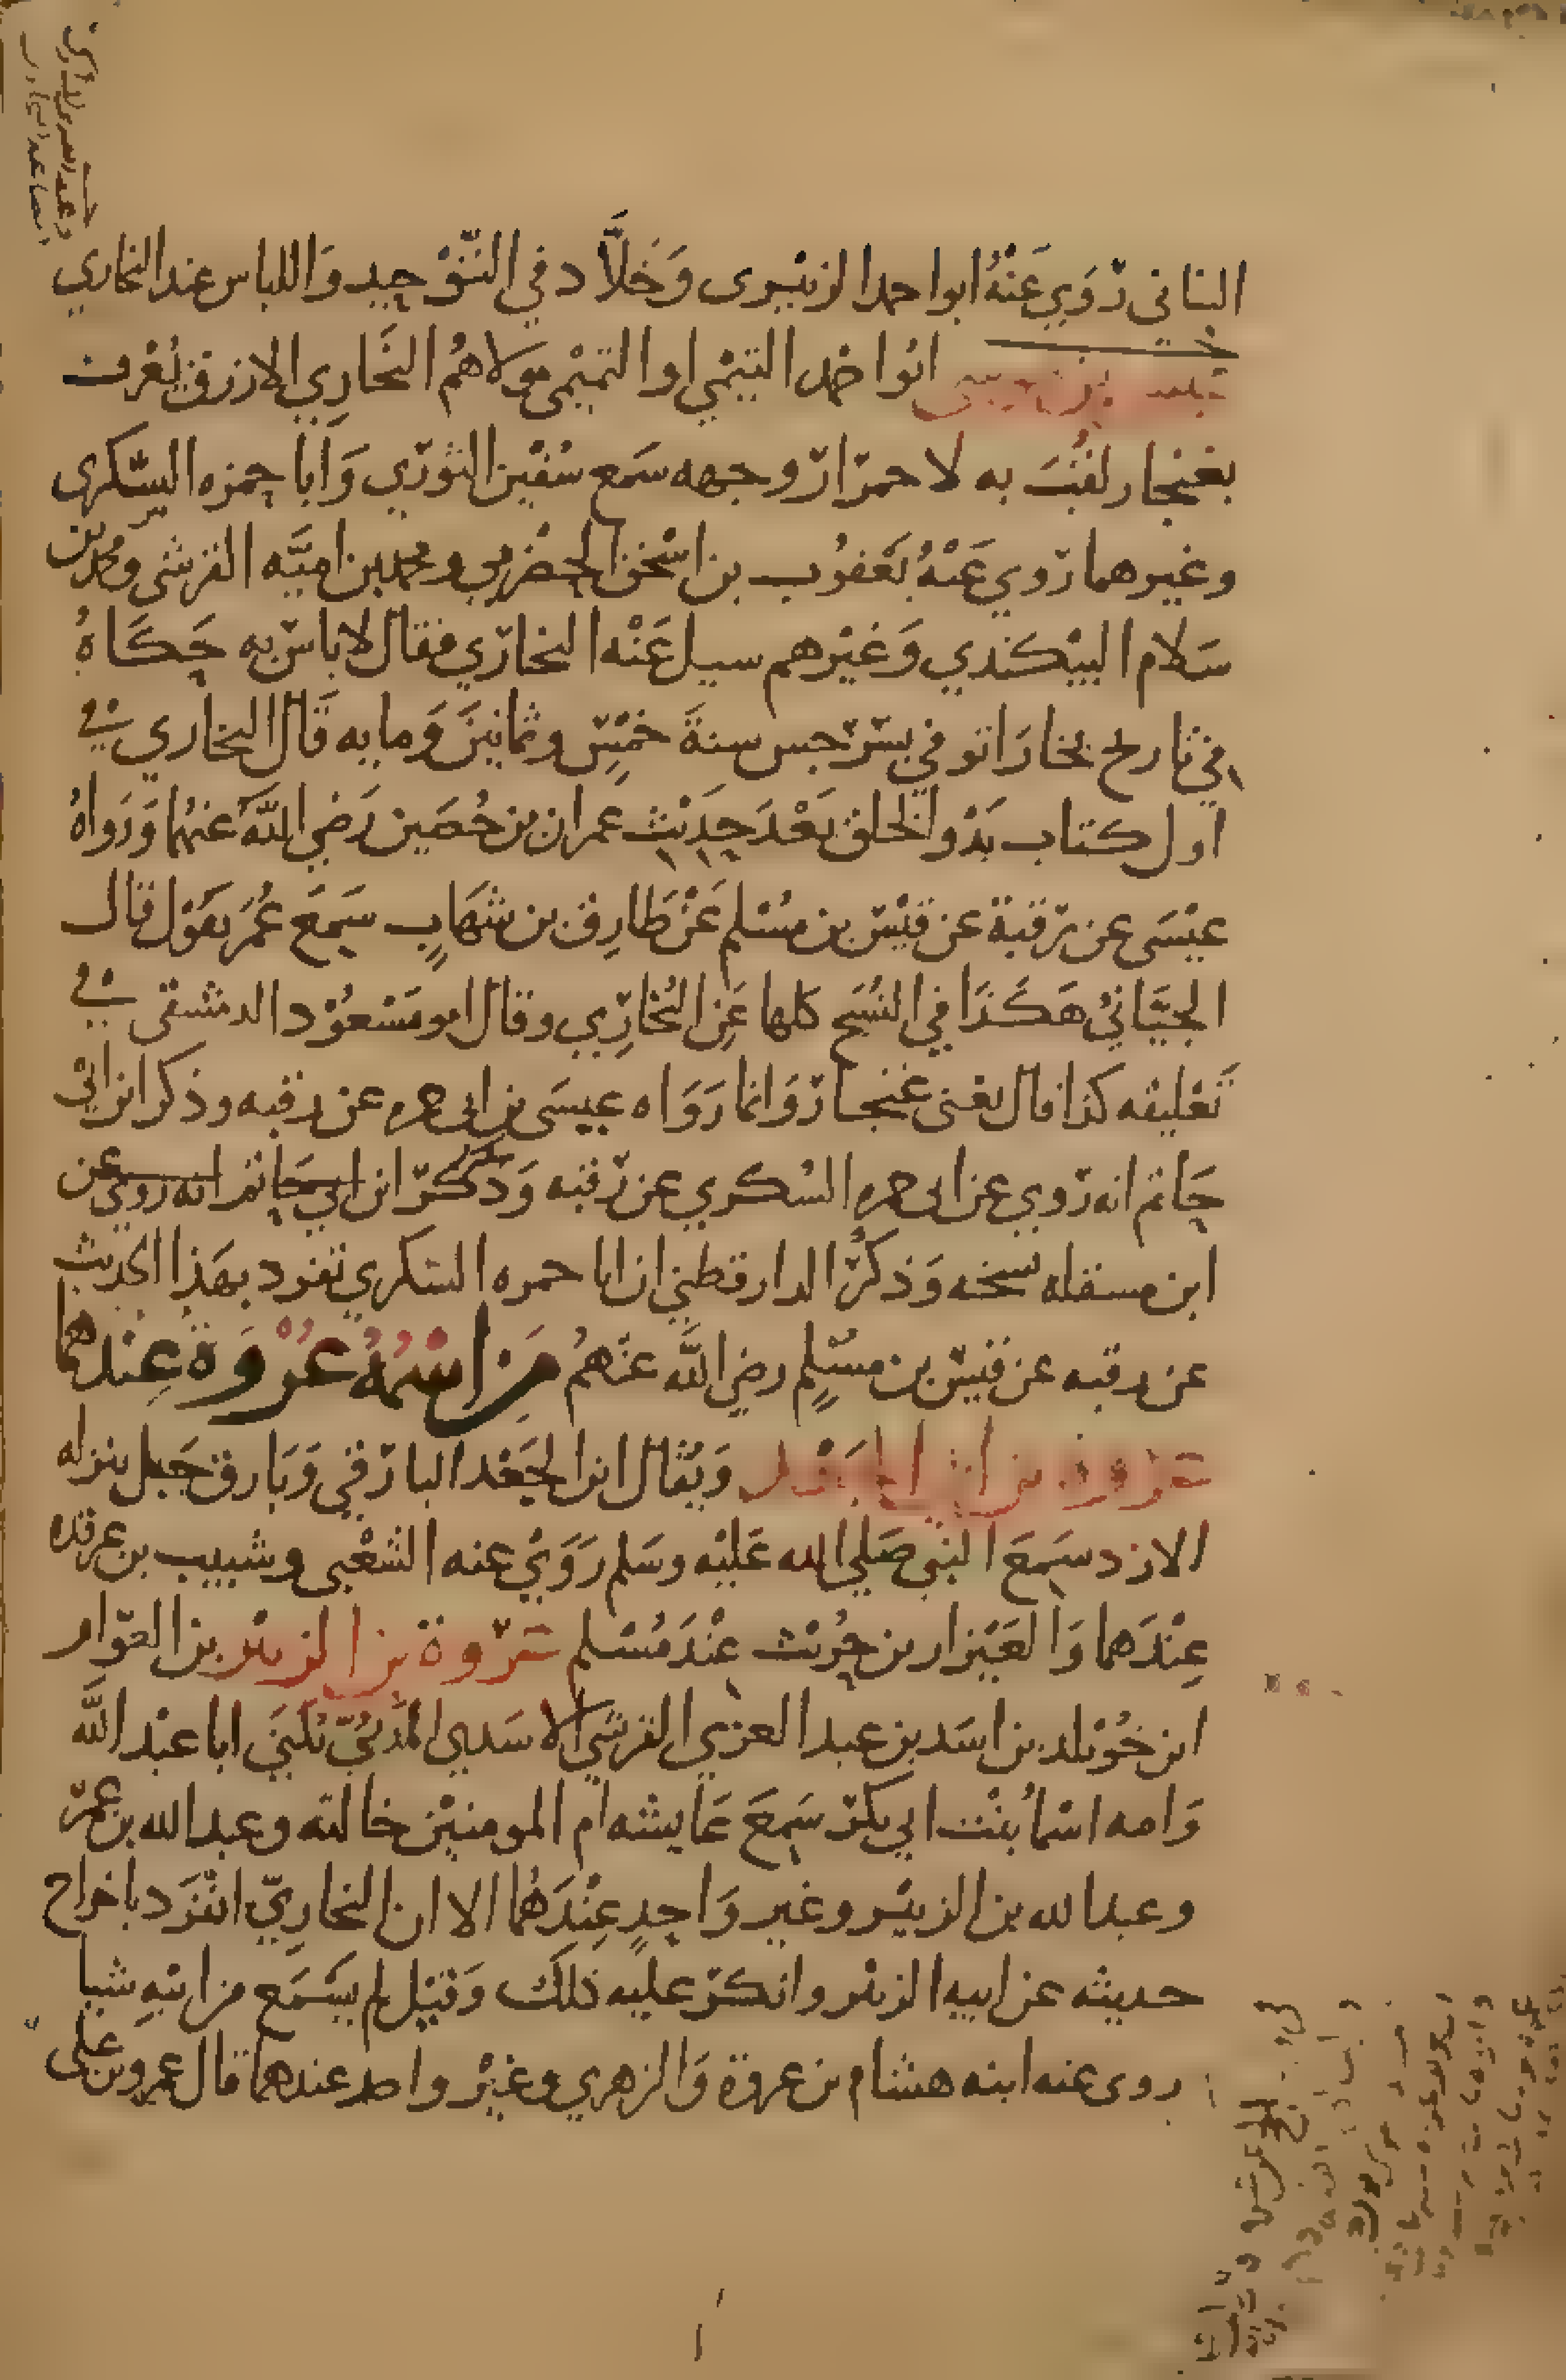 البناني رَوَي عَنْهُ ابوا حمد الزبيرى وَخَلاَّد في التوْحيد وَاللباس عند البخاري
عيسى بن موسى ابُوا حْمد التيْمي او التميْمى مولاهُم البُخَارِي الازرق يُعْرف
بغنجار لقبَ به لاحمرَار وجهه سَمع سُفْين الثورَي وَابا حمزه السّكرى
وغيرهما رَوي عَنْهُ يَعْقُوب بن اسْحق الحضْرمي ومحمد بن اميَّه القرشى ومحمد بن
سَلام البيْكندي وَغيْرهم سيل عَنْه البخاري فقال لا باسَ به حَكَاهُ
في تاريخ بخارَا توفي بسَرَخس سنةَ خَمْسٍ وثمانينَ وَمايه قَال البخاري في
اول كتاب بَدْو الخلق بَعْدَ حَدِيْثِ عمران بن حُصَين رَضي اللهُ عنهُما وَرَوَاهُ
عيْسَى عن رَقبة عن قيْسَ بن مسْلم عَنْ طَارِق بن شهَابٍ سَمِعَ عُمَر يقَوْل قال
الجيَّانيُ هَكَذَا في النُسَخ كلها عَنِ البُخَارِي وقال ابو مَسْعوْد الدمشقى في
تَعْليقه كذا قال يعْنى غنجار وَانما رَوَاه عيسَى بن ابى حمزه عن رقبه وذكر ابن ابي
حَاتم انه رَوي عن ابى حمزه السُكري عن رَقبه وَذكرَ ابن ابي حَاتم انه روي عن
ابن مسقله نسخه وَذكرَ الدارقطني ان ابا حمزه السَكري تفرد بهَذا الحديث
عن رقبه عن قيسَ بن مسْلِمٍ رضي اللَّه عنْهُمُ مَن اسْمُهُ عُرْوَة عِنْدهما
عروة بن ابي الجَعْد وَيُقال ابن الجَعْد البارَقي وَبَارق جَبل ينزله
الازد سَمِعَ النبي صَلي الله عَليْه وسَلم رَوَي عنه الشعْبى وشبيب بن غرقده
عِنْدَهما وَالعَيْزار بن حُريْث عِنْدَ مُسْلم عرْوة بن الزبير بن العوَّام
ابن خُوَيْلد بن اسَد بن عبد العزي القرشي الاسَدي المدَنيُّ يُكنَي ابا عبْد اللَّه
وَامه اسْمأُ بنْت ابي بكرَ سَمِعَ عَايشه ام المومنيْن خالته وعبد الله بن عمَرَ
وعبد الله بن الزبيْر وغير وَاحدٍ عِنْدَهُما الا ان البخارِيّ انفرَد باخراج
حديثه عن ابيه الزبير وانكرَ عليه ذلكَ وَقيْل لم يسْمَع من ابيهِ شيا
روى عنه ابنه هشام بن عروة وَالزهري وغيْر واحد عندهما قال عمرو بن على